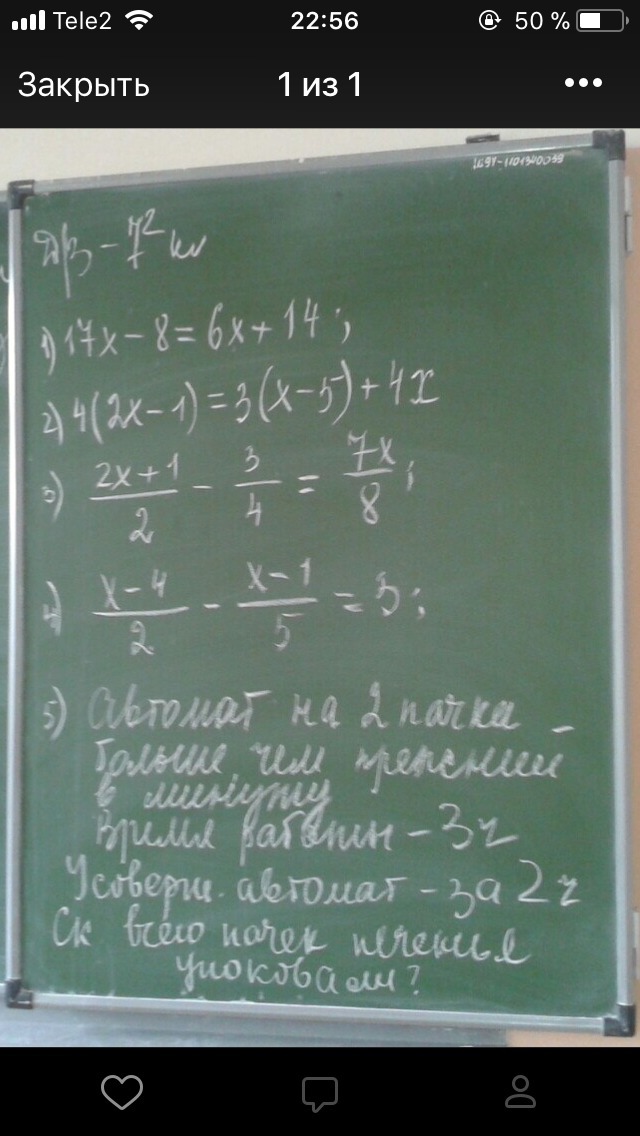 Tele2 22:56 50 %
Закрыть 1 из 1 •••
Др - 7² кл
1) 17x - 8 = 6x + 14 ;
2) 4(2x - 1) = 3(x - 5) + 4x
3) (2x + 1)/2 - 3/4 = 7x/8 ;
4) (x - 4)/2 - (x - 1)/5 = 3 ;
5) Автомат на 2 пачка -
больше, чем прежний
в минуту
Время работы - 3ч
Усоверш. автомат - за 2ч
Ск всего пачек печенья
упоковали?